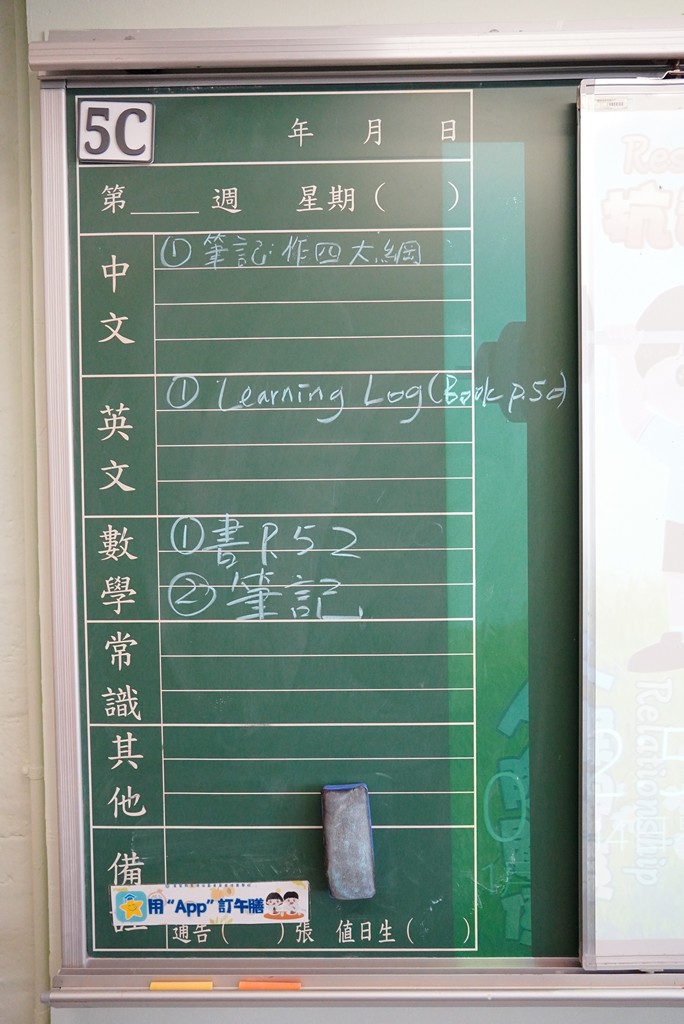 5C
年 月 日
第____週 星期( )
中文
①筆記:作四大綱
英文
① Learning Log (Book p.50)
數學
①書P.52
②筆記
常識
其他
備
用“App”訂午膳
通告( )張 值日生( )
Relationship